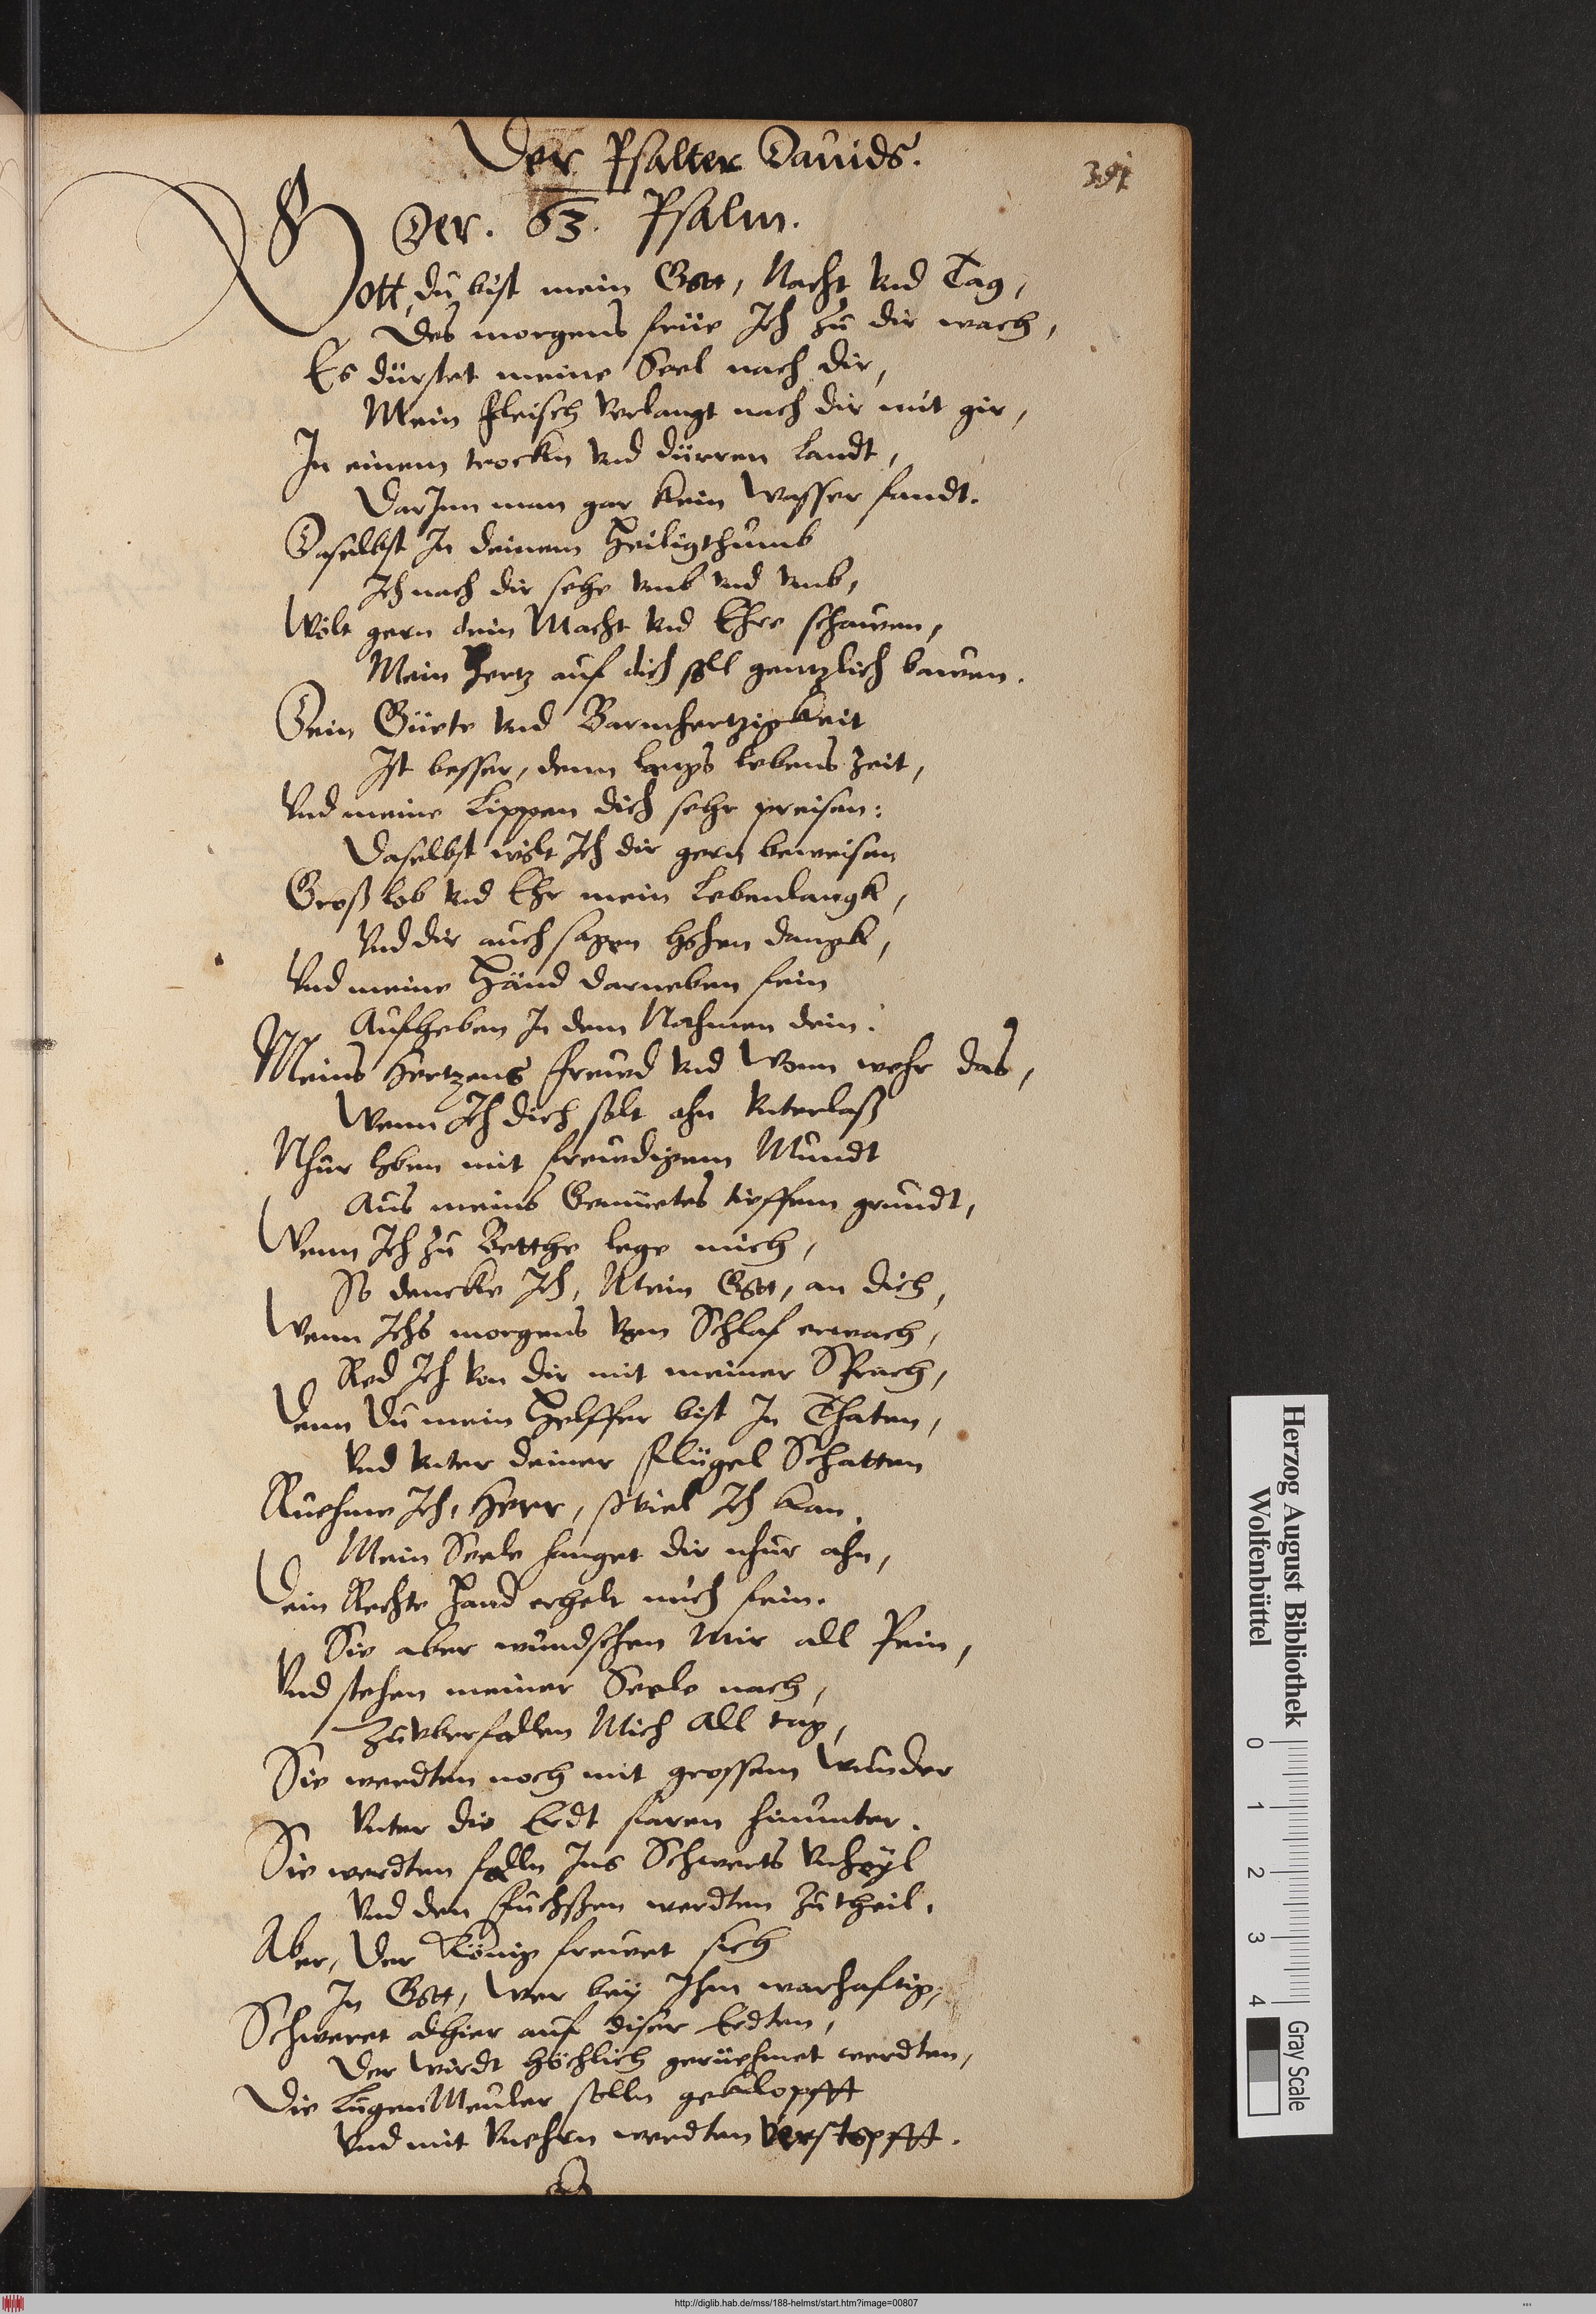 Der Psalter Dauids.
391
Der. 63. Psalm.
Gott, du bist mein Gott, Nacht vnd Tag,
Des morgens früe Ich zu dir wach,
Es dürstet meine Seel nach dir,
Mein fleisch verlangt nach dir mit gir,
In einem trockn vnd dürren landt,
DarInn man gar kein Wasser fandt.
Daselbst In deinem Heiligthumb
Ich nach dir sehe vmb vnd vmb,
Wolt gern dein Macht vnd Ehre schawen,
Mein Hertz auf dich soll gentzlich bawen.
Dein Güete vnd Barmhertzigkeit
Ist besser, denn langs lebens Zeit,
Vnd meine Lippen dich sehr preisen:
Daselbst wolt Ich dir gern beweisen
Groß lob vnd Ehr mein Lebenlangk,
Vnd dir auch sagen hohen dangk,
Vnd meine Händ darneben fein
Aufheben In dem Nahmen dein.
Meins Hertzens freud vnd Wonn wehr das,
Wenn Ich dich solt ohn vnterlaß
Nhur loben mit freudigem Mundt
Aus meins Gemüetes tieffem grundt,
Wenn Ich zu Betthe lege mich,
So dencke Ich, Mein Gott, an dich,
Wenn Ichs morgens vom Schlaf erwach,
Red Ich von dir mit meiner Sprach,
Denn du mein Helffer bist In Thaten,
Vnd vnter deiner flügel Schatten
Ruehme Ich, Herr, soviel Ich kan.
Mein Seele hanget dir nhur ahn,
Dein Rechte Hand erhelt mich fein.
Sie aber wundschen Mir all Pein,
Vnd stehen meiner Seele nach,
Zu vberfallen Mich all tag,
Sie werdten noch mit grossem Wunder
Vnter die Erdt faren hinunter.
Sie werdten falln Ins Schwerts vnheyl
Vnd den fuchssen werdten zu theil.
Aber, der König frewet sich
In Gott, Wer bey Ihm warhaftig,
Schweret alhier auf diser Erdten,
Der wirdt höchlich gerüehmet werdten,
Die LugenMeuler solln geklopfft
Vnd mit vnehrn werdten verstopfft.
Herzog August Bibliothek
Wolfenbüttel
0 1 2 3 4
Gray Scale
http://diglib.hab.de/mss/188-helmst/start.htm?image=00807